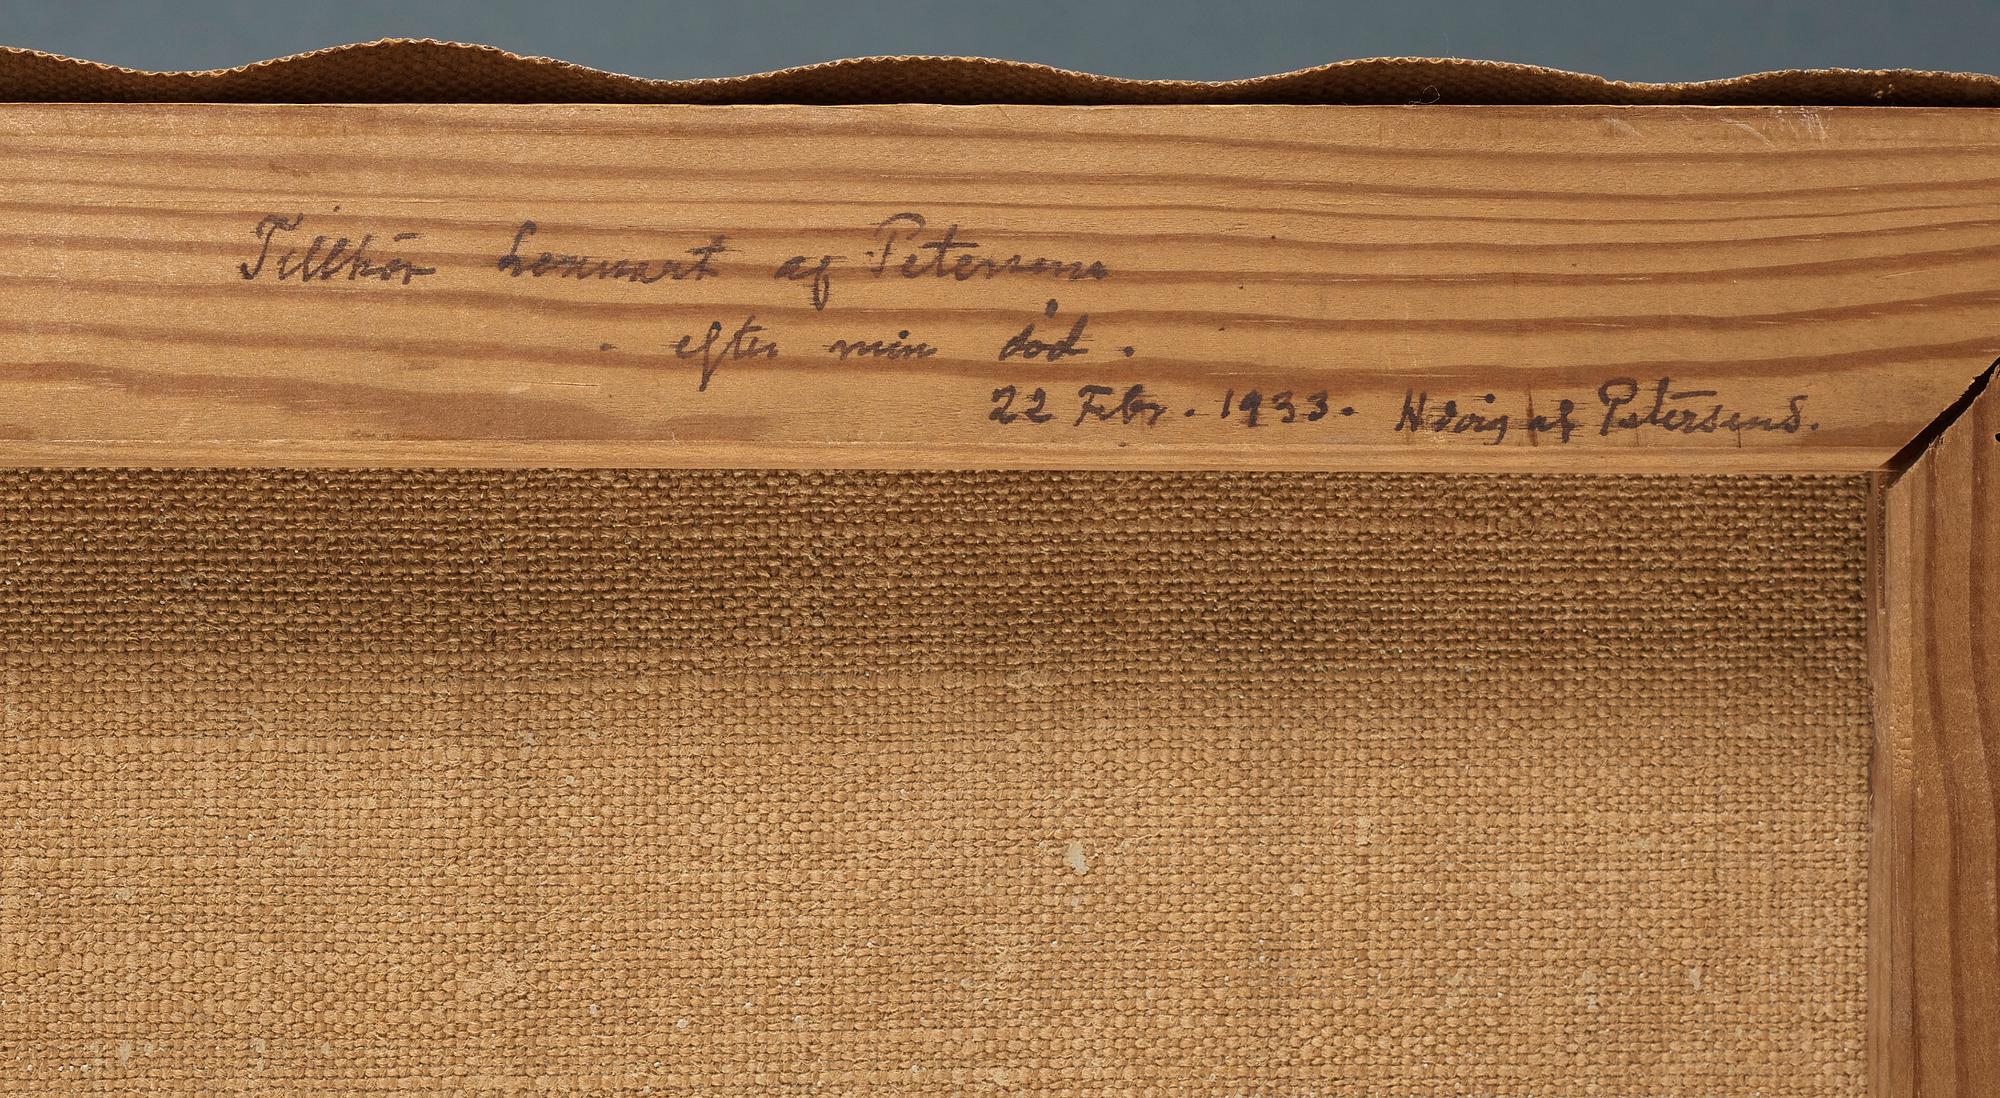 Tillhör Lennart af Petersens
- efter min död.
22 Febr. 1933. Hedvig af Petersens.